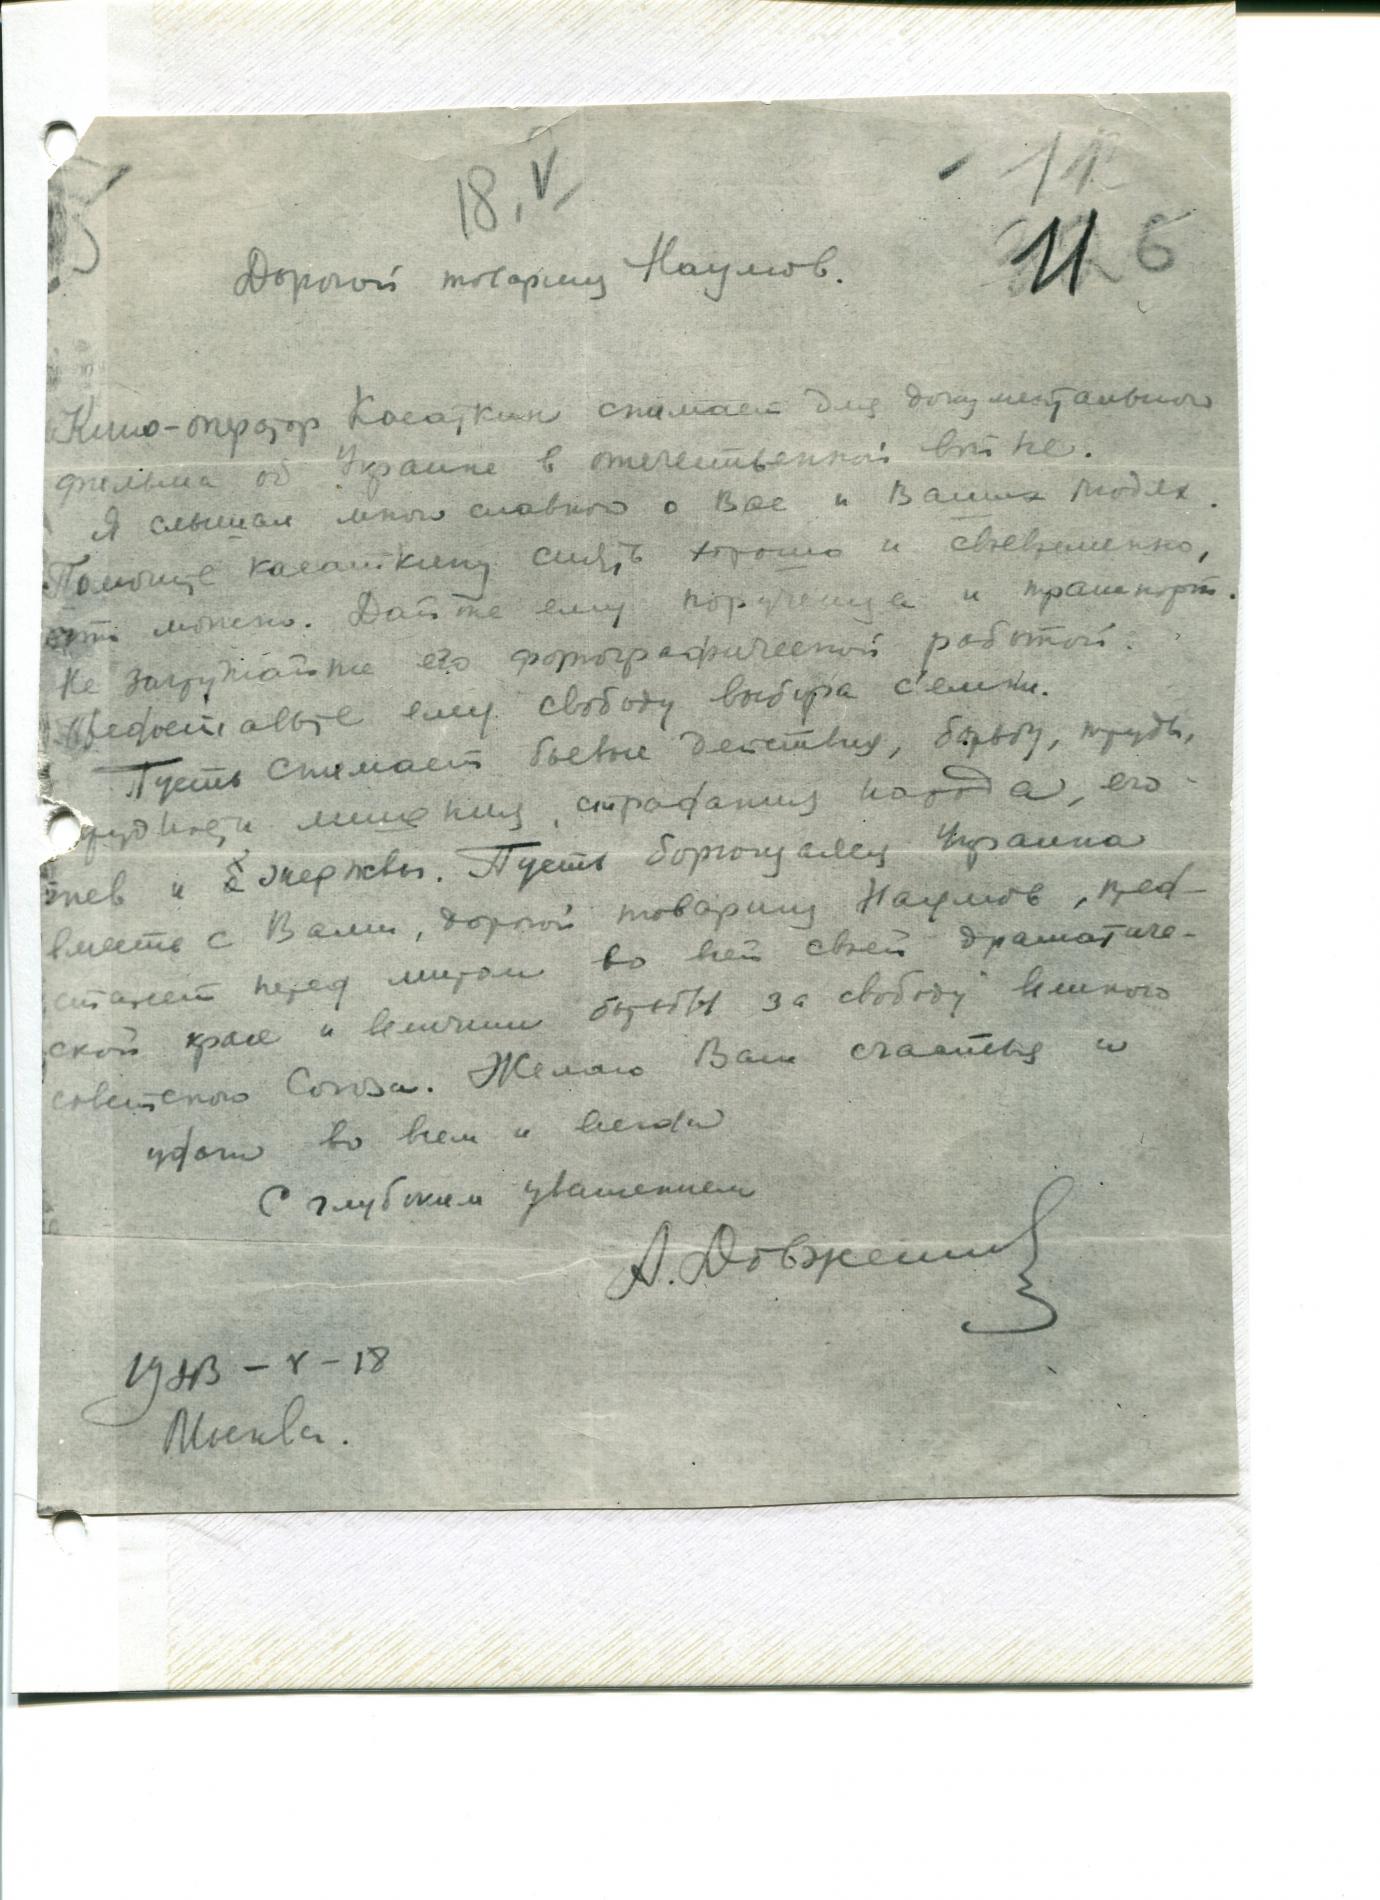 18.V
11
6
Дорогой товарищ Наумов.
Кино-оператор Касаткин снимает для документального
фильма об Украине в отечественной войне.
Я слышал много славного о Вас и Ваших людях.
Помощь Касаткину снять хорошо и своевременно,
можно. Дайте ему и транспорт.
Не загружайте его фотографической работой.
Предоставьте ему свободу выбора с'емки.
Пусть снимает боевые действия, борьбу, труды,
мщения, страдания народа, его
гнев и жертвы. Пусть борющаяся Украина
вместе с Вами, дорогой товарищ Наумов, пред-
станет перед миром во всей своей драматиче-
ской красе и величии борьбы за свободу великого
советского Союза. Желаю Вам счастья и
удачи во всем и всегда
С глубоким уважением
А. Довженко
1943-V-18
Москва.